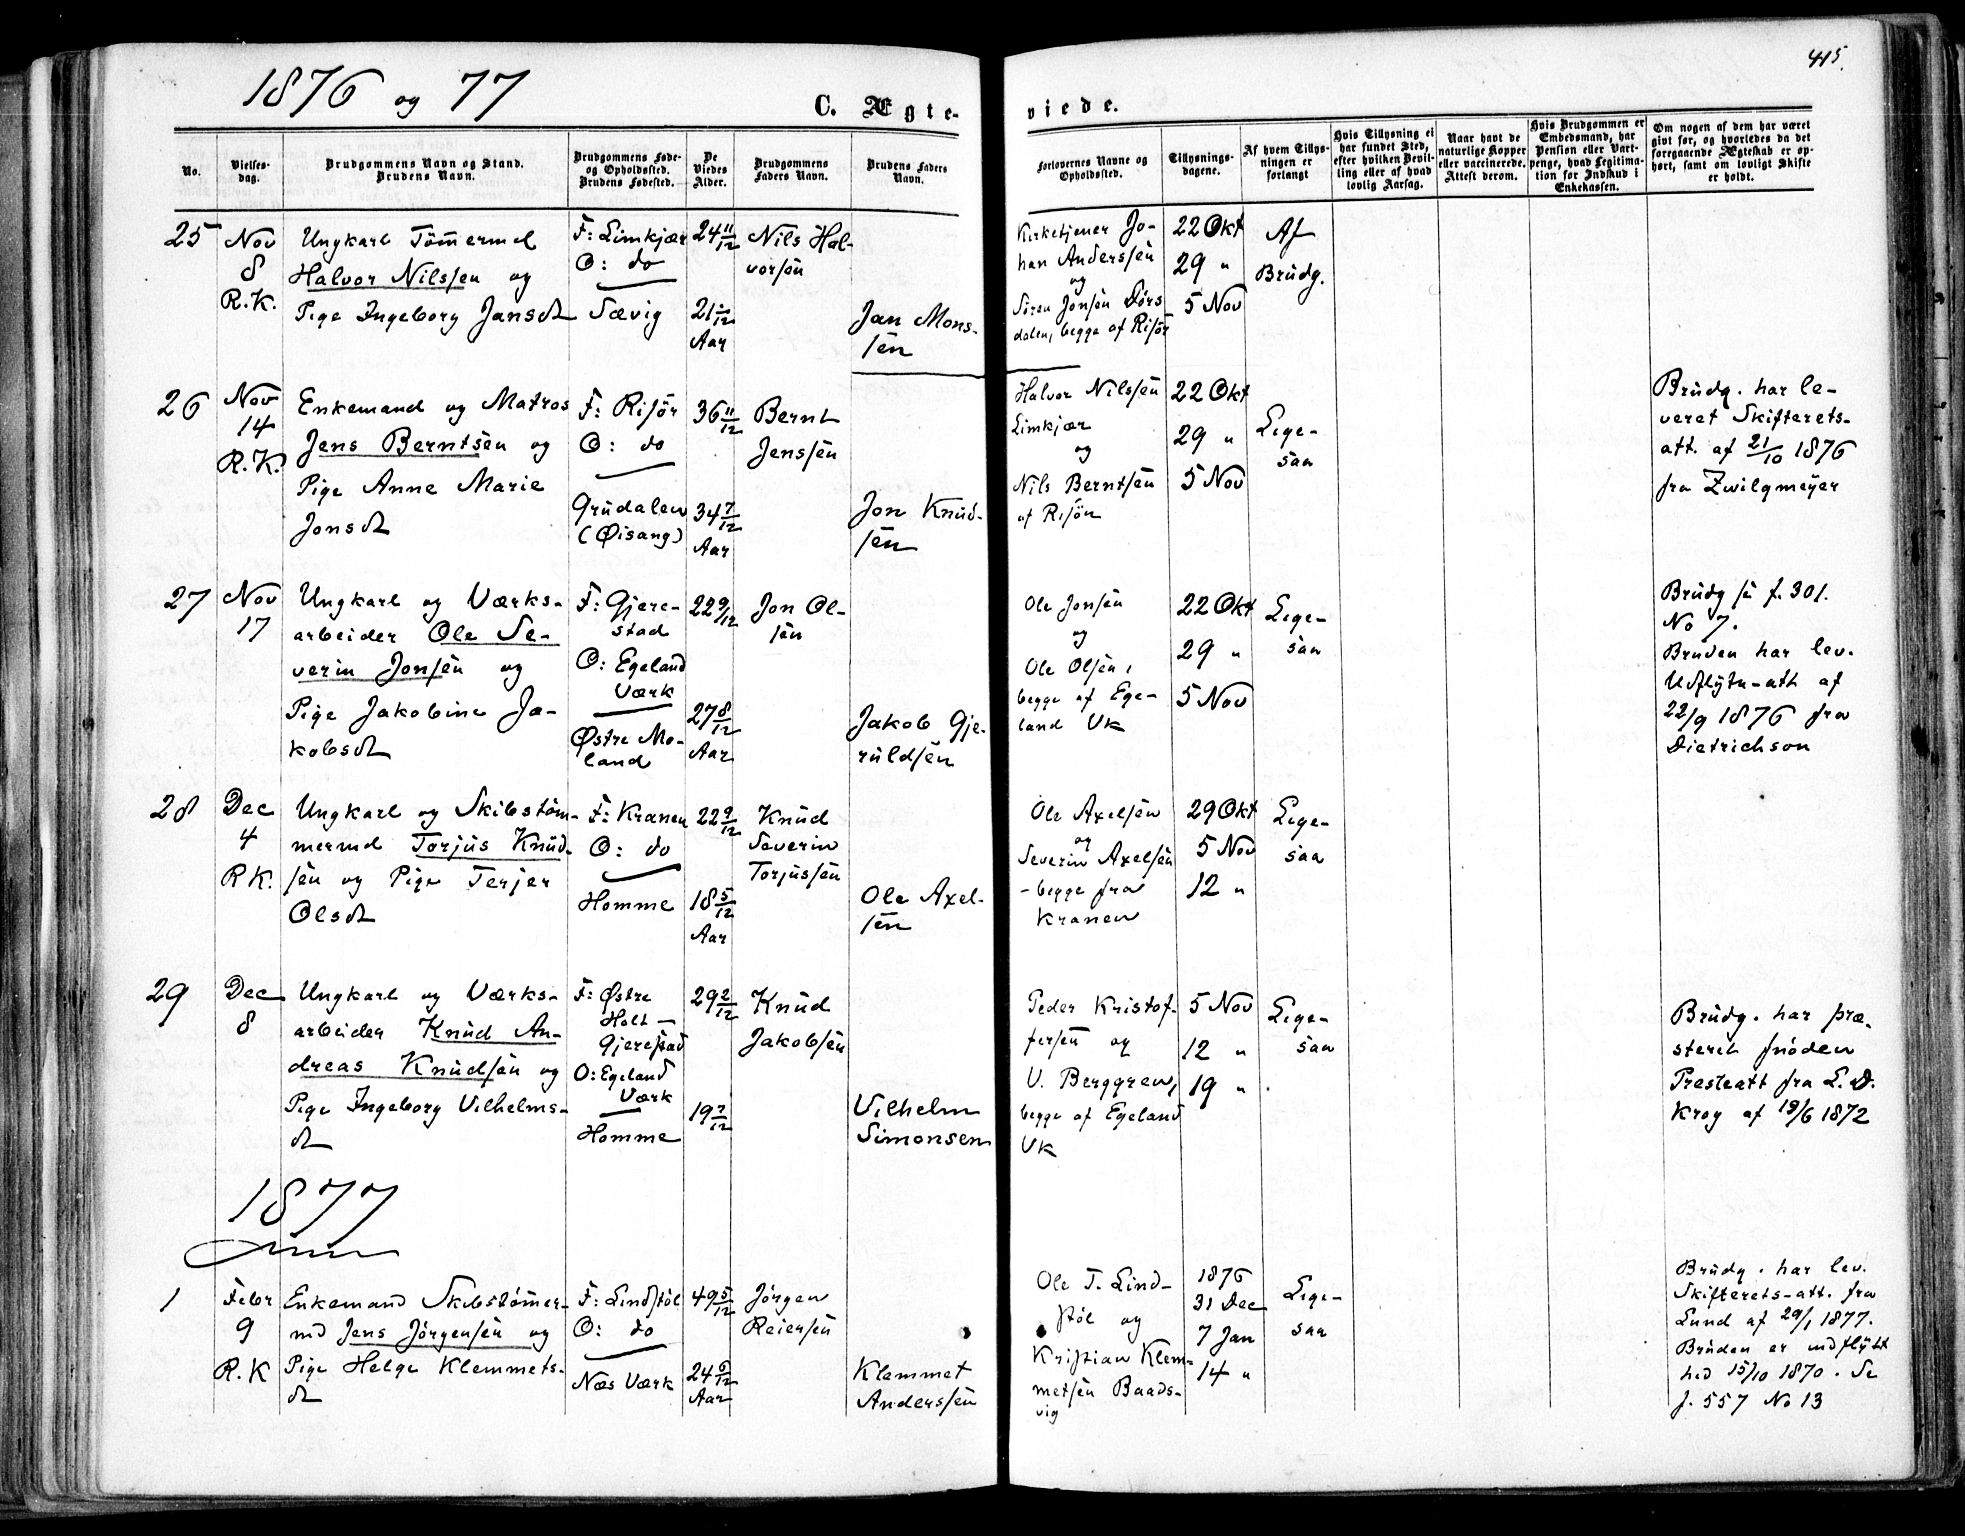 1876 og 77
415.
C. Ægte-
viede.
No.
Vielses-
dag.
Brudgommens Navn og Stand.
Brudens Navn.
Brudgommens Føde-
og Opholdssted.
Brudens Fødested.
De
Viedes
Alder.
Brudgommens
Faders Navn.
Brudens Faders
Navn.
Forlovernes Navne og
Opholdssted.
Tillysnings-
dagene.
Af hvem Tillys-
ningen er
forlangt
Hvis Tillysning ei
har fundet Sted,
efter hvilken Bevil-
ling eller af hvad
lovlig Aarsag.
Naar havt de
naturlige Kopper
eller vaccinerede.
Attest derom.
Hvis Brudgommen er
Embedsmand, har
Pension eller Vart-
penge, hvad Legitima-
tion for Indskud i
Enkekassen.
Om nogen af dem har været
gift før, og hvorledes da det
foregaaende Ægteskab er op-
hørt, samt om lovligt Skifte
er holdt.
25
Nov
8
R.K.
Ungkarl Tømermd
Halvor Nilssen og
Pige Ingeborg Jansdt
F: Limkjær
O: do
Sævig
24 11/12
21 /12
Aar
Nils Hal-
vorsen
Jan Mons-
sen
Kirketjener Jo-
han Anderssen
og
Søren Jonsen Dørs
dalen, begge af Risør
22 Okt
29 "
5 Nov
Af
Brudg.
26
Nov
14
R.K.
Enkemand og Matros
Jens Berntsen og
Pige Anne Marie
Jonsdt
F: Risør
O: do
Grudalen
(Øisang)
36 11/12
34 7/12
Aar
Bernt
Jenssen
Jon Knud-
sen
Halvor Nilssen
Limkjær
og
Nils Berntsen
af Risør
22 Okt
29 "
5 Nov
Lige-
saa
Brudg. har le-
veret Skifterets-
att. af 21/10 1876
fra Zwilgmeyer
27
Nov
17
Ungkarl og Værks-
arbeider Ole Se-
verin Jonsen og
Pige Jakobine Ja-
kobsdt
F: Gjere-
stad
O: Egeland
Værk
Østre Mo-
land
22 9/12
27 8/12
Aar
Jon Ol-
sen
Jakob Gje-
ruldsen
Ole Jonsen
og
Ole Olsen,
begge af Ege-
land Vk
22 Okt
29 "
5 Nov
Lige-
saa
Brudg se f. 301.
No 7.
Bruden har lev.
Udflytn-att af
22/9 1876 fra
Dietrichson
28
Dec
4
R K.
Ungkarl og Skibstøm-
mermd Torjus Knud-
sen og Pige Terjer
Olsdt
F: Kranen
O: do
Homme
22 9/12
18 5/12
Aar
Knud
Severin
Torjussen
Ole Axel-
sen
Ole Axelsen
og
Severin Axelsen
- begge fra
Kranen
29 Okt
5 Nov
12 "
Lige-
saa
29
Dec
8
Ungkarl og Værks-
arbeider Knud An-
dreas Knudsen og
Pige Ingeborg Vilhelms-
dt
F: Østre
Holt -
Gjerestad
O: Egeland
Værk
Homme
29 2/12
19 7/12
Knud
Jakobsen
Vilhelm
Simonsen
Peder Kristof-
fersen og
V. Berggren,
begge af Egeland
Vk
5 Nov
12 "
19 "
Lige-
saa
Brudg. har præ-
steret
Presteatt fra L. D.
Krog af 18/6 1872
1877
1
Febr
9
R.K
Enkemand Skibstømer-
md Jens Jørgensen og
Pige Helge Klemmets-
dt
F: Lindstøl
O: do
Næs Værk
49 5/12
24 6/12
Aar
Jørgen
Reiersen
Klemmet
Anderssen
Ole T. Lind-
støl og
Kristian Klem-
metsen Baads-
vig
1876
31 Dec
7 Jan
14 "
Lige-
saa
Brudg. har lev.
Skifterets-att. fra
Lund af 29/1 1877.
Bruden er indflytt
hid 15/10 1870. Se
f. 557 No 13